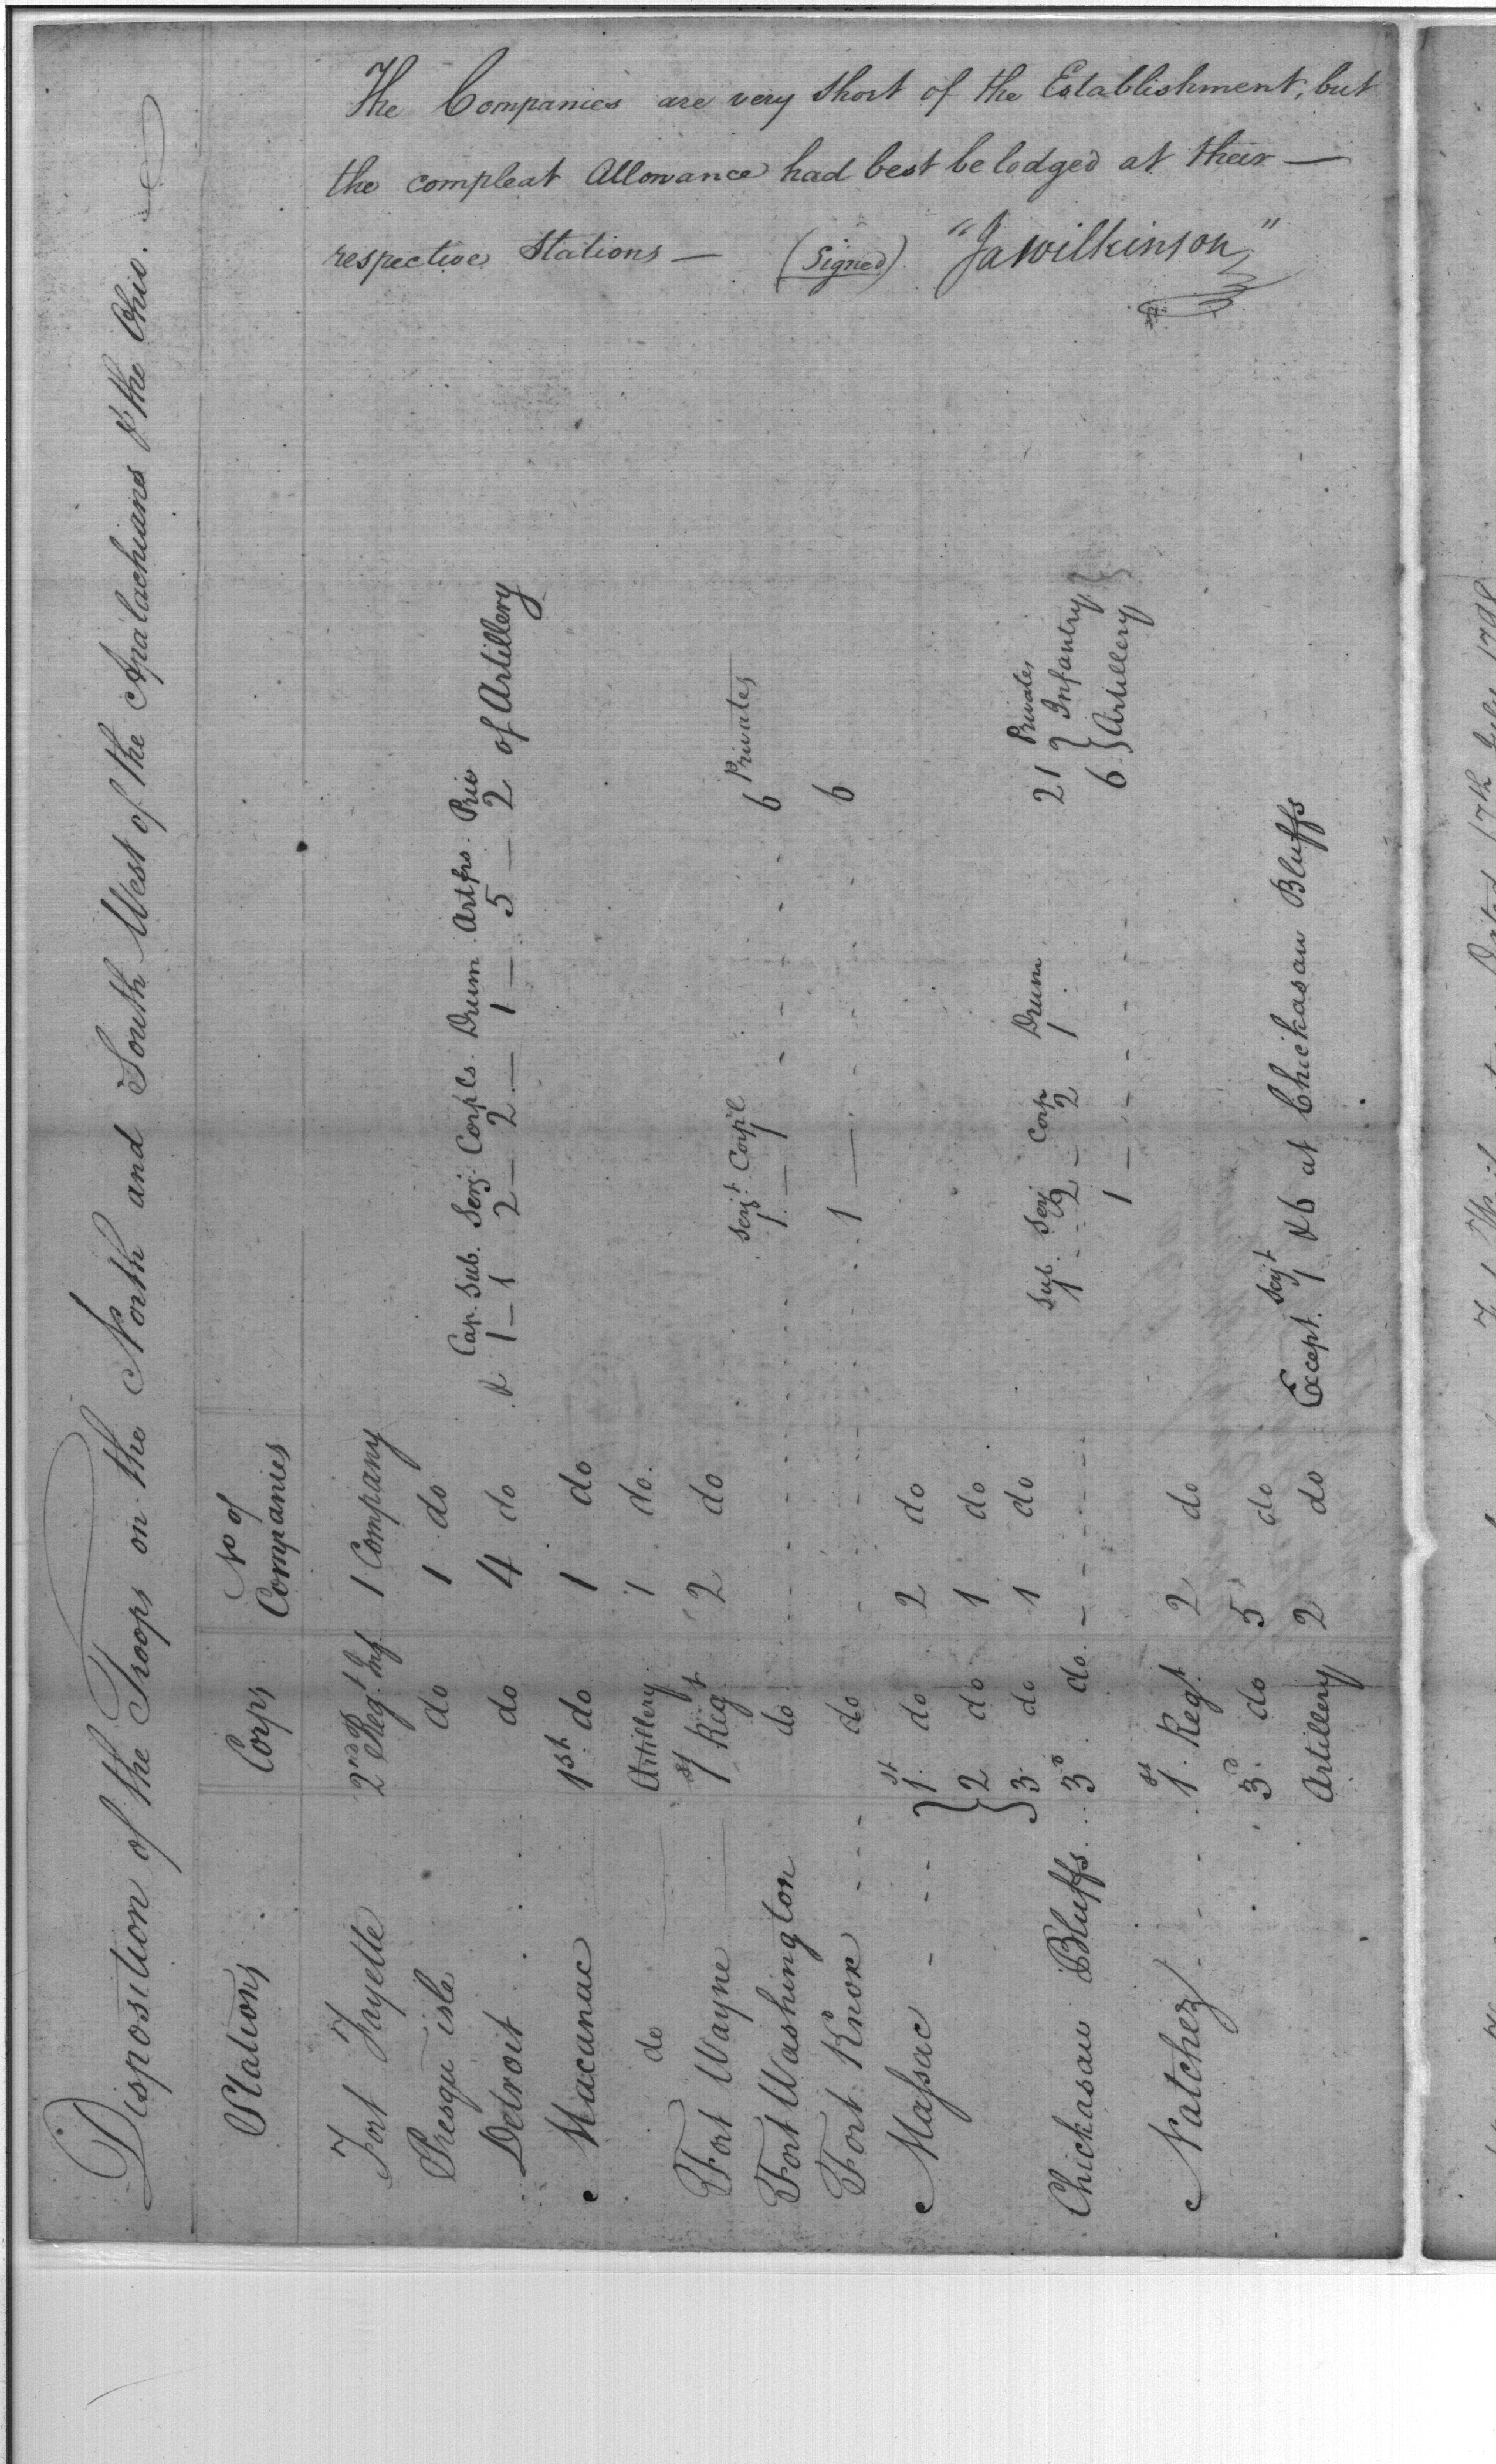 Disposition of the Troops on the North and South West of the Apalachians & the Ohio.
Stations Corps No of Companies
Fort Fayette 2nd Regt Inf. 1 Company
Presqu isle do 1 do
Cap. Sub. Serj. Corpls. Drum Artfrs. Priv
Detroit do 4 do & 1 — 1 2 — 2 — 1 — 5 — 2 of Artillery
Macanac 1st do 1 do
do Artillery 1 do.
Fort Wayne 1st Regt 2 do
Serjt Corpl Privates
Fort Washington do 1 — 1 6
Fort Knox do 1 — 6
Massac 1st do 2 do
2 do 1 do
3 do 1 do
Sub. Serj Corp Drum Privates
Chickasau Bluffs 3d do 1 2 2 1 21 } Infantry }
1 — 6 } Artillery }
Natchez 1st Regt 2 do
3d do 5 do
Serjt
Artillery 2 do Except. 1 & 6 at Chickasau Bluffs
The Companies are very short of the Establishment, but
the compleat Allowance had best be lodged at their —
respective Stations — (Signed) "Ja Wilkinson"
Dated 17th July 1798